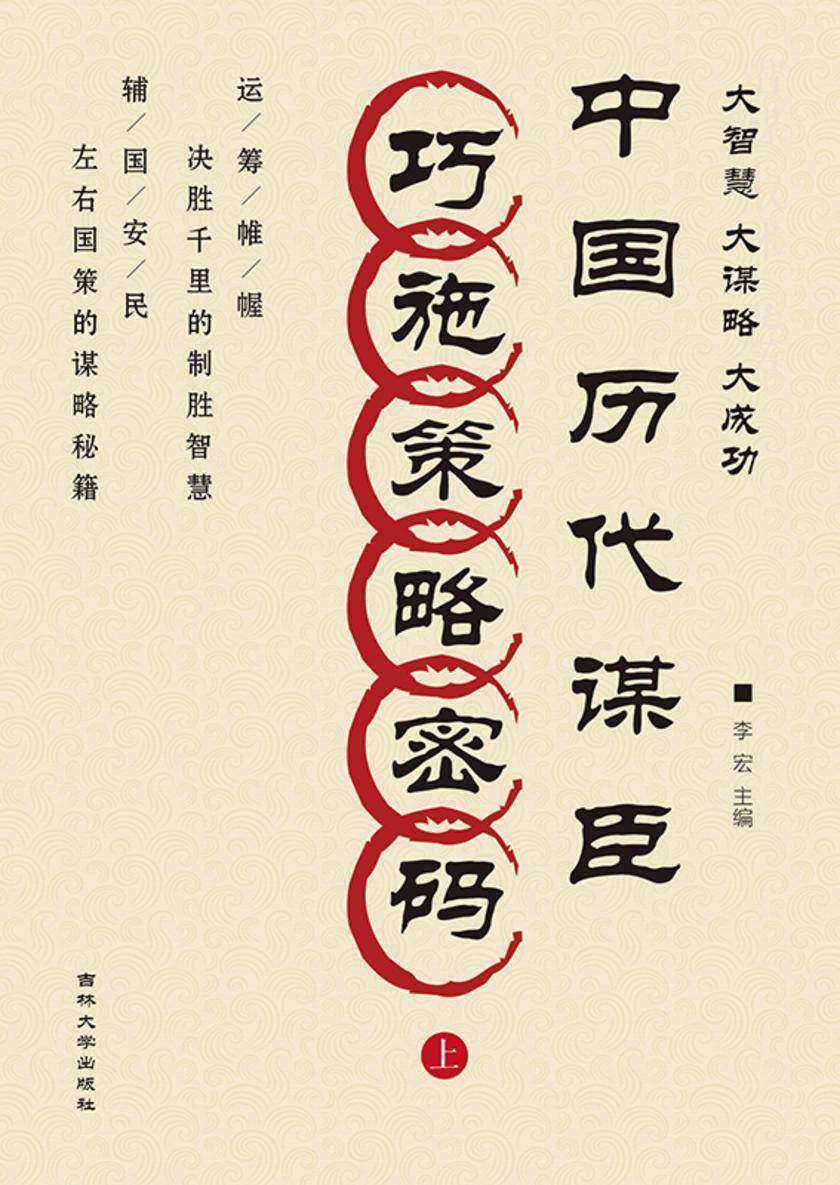 大智慧 大谋略 大成功
李宏 主编
中国历代谋臣
巧施策略密码
上
运/筹/帷/幄
决胜千里的制胜智慧
辅/国/安/民
左右国策的谋略秘籍
吉林大学出版社